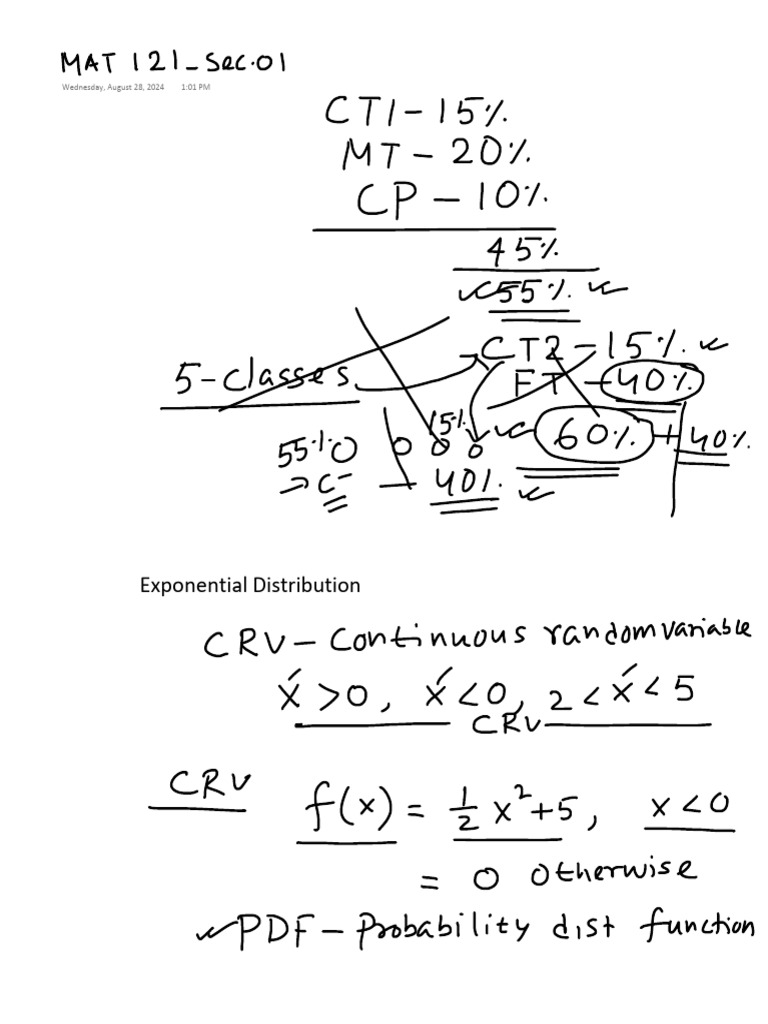 MAT 121_Sec.01
Wednesday, August 28, 2024 1:01 PM
CT1-15%
MT-20%
CP-10%
45%
55%
CT2-15%
5-classes
FT-40%
15%
55% 0 0 0 0 60%+40%
C- - 40%
Exponential Distribution
CRV-Continuous random variable
x>0, x<0, 2<x<5
CRV
CRV f(x) = 1/2 x²+5, x<0
= 0 otherwise
PDF-Probability dist function